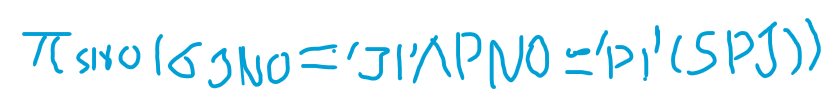 π sno(σ JNO='J1'∧PNO='P1'(SPJ))